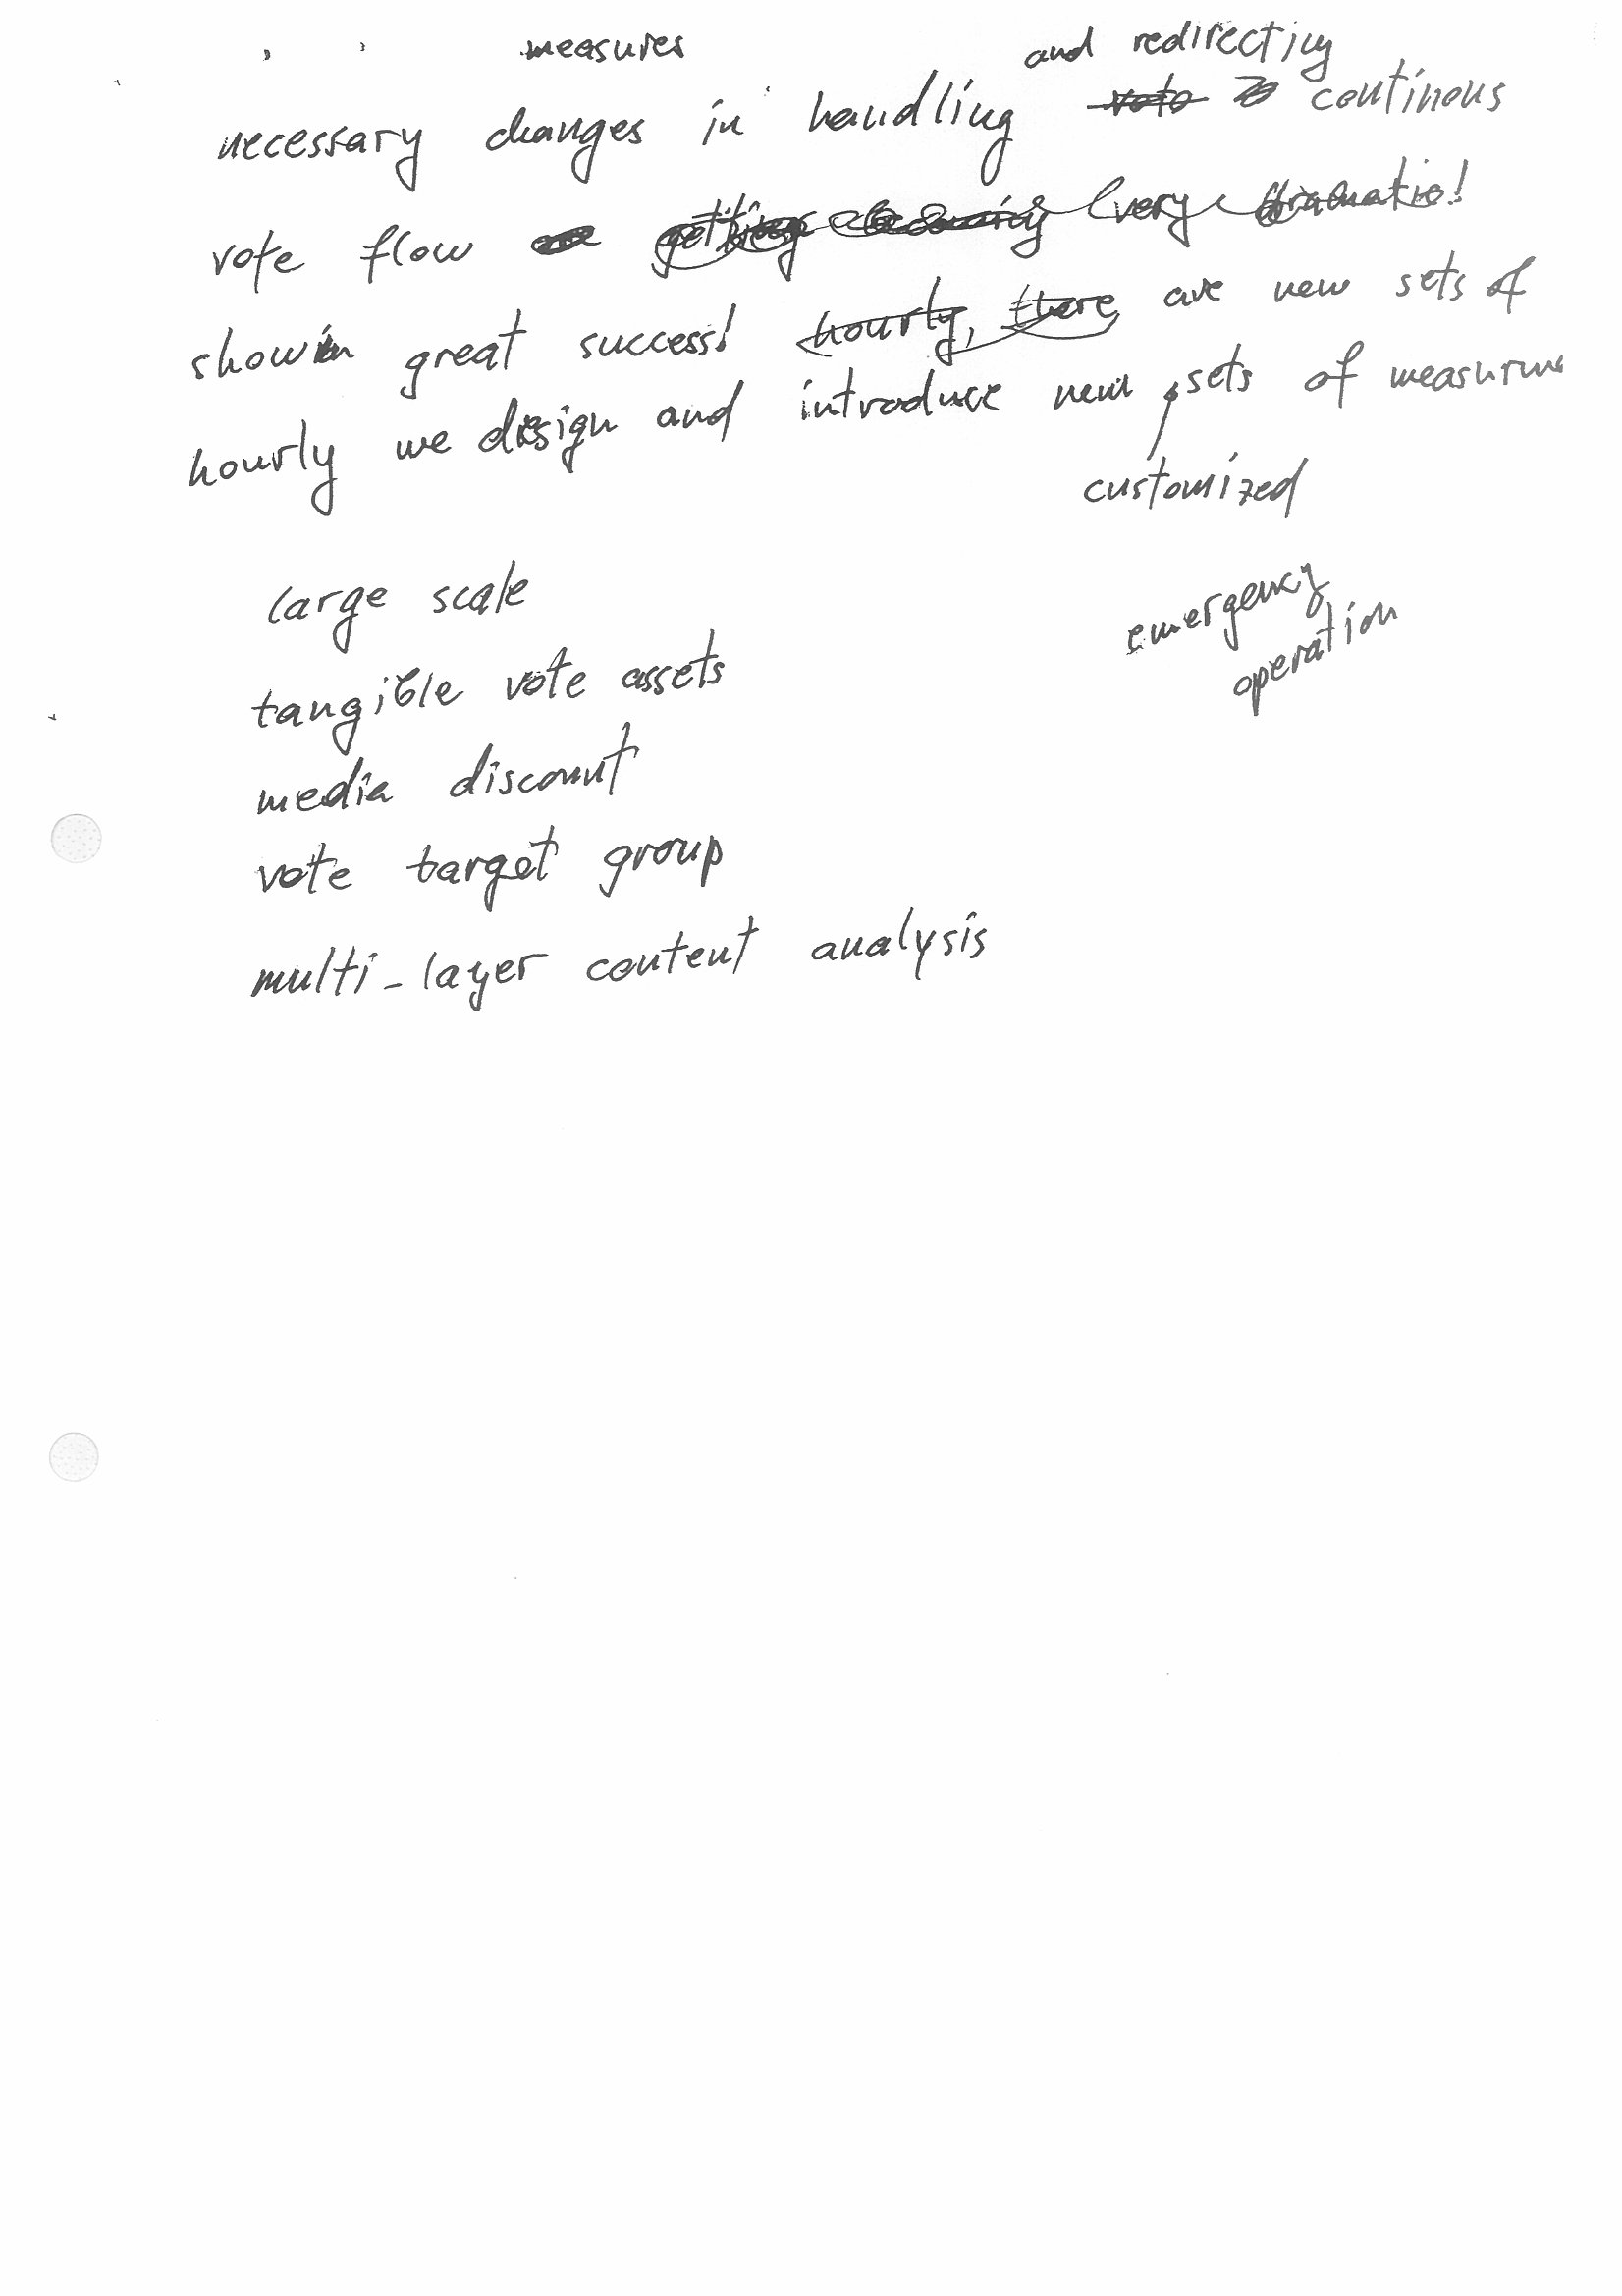 measures and redirecting
necessary changes in handling voto continous
vote flow getting becoming very dramatic!
show great success! hourly, there are new sets of
hourly we design and introduce new sets of
customized
large scale
emergency
operation
tangible vote assets
media discount
vote target group
multi-layer content analysis